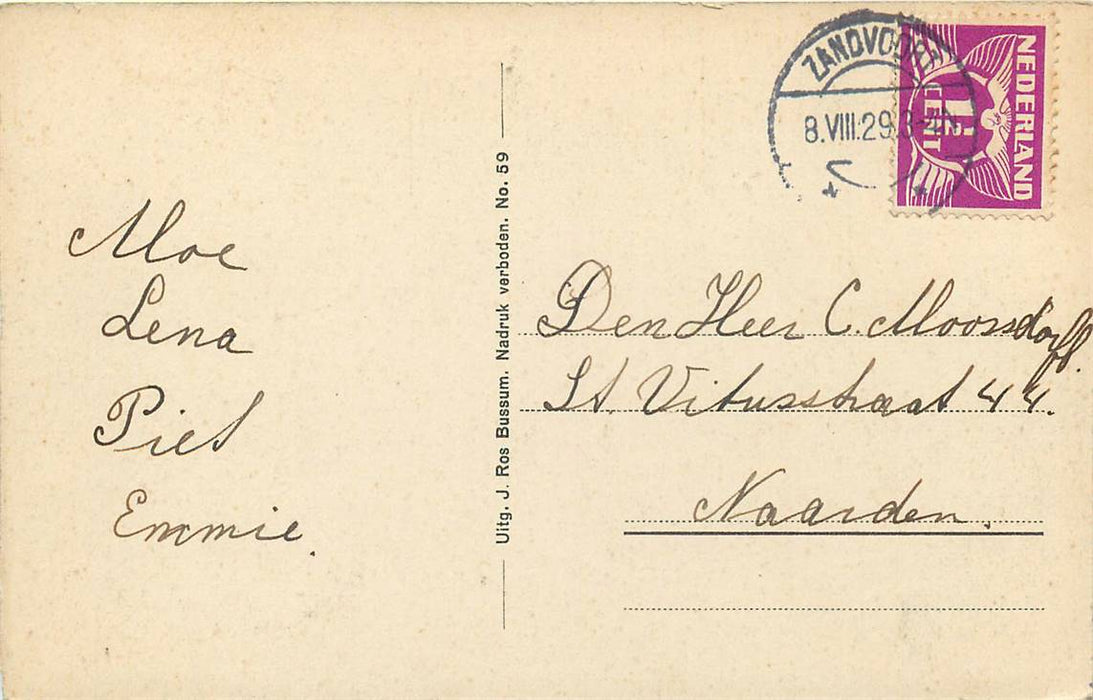 ZANDVOORT
8.VIII.29.3-4N
NEDERLAND
1½
CENT
Moe
Lena
Piet
Emmie.
Uitg. J. Ros Bussum. Nadruk verboden. No. 59
Den Heer C. Moorsdorff.
St. Vitusstraat 44.
Naarden.